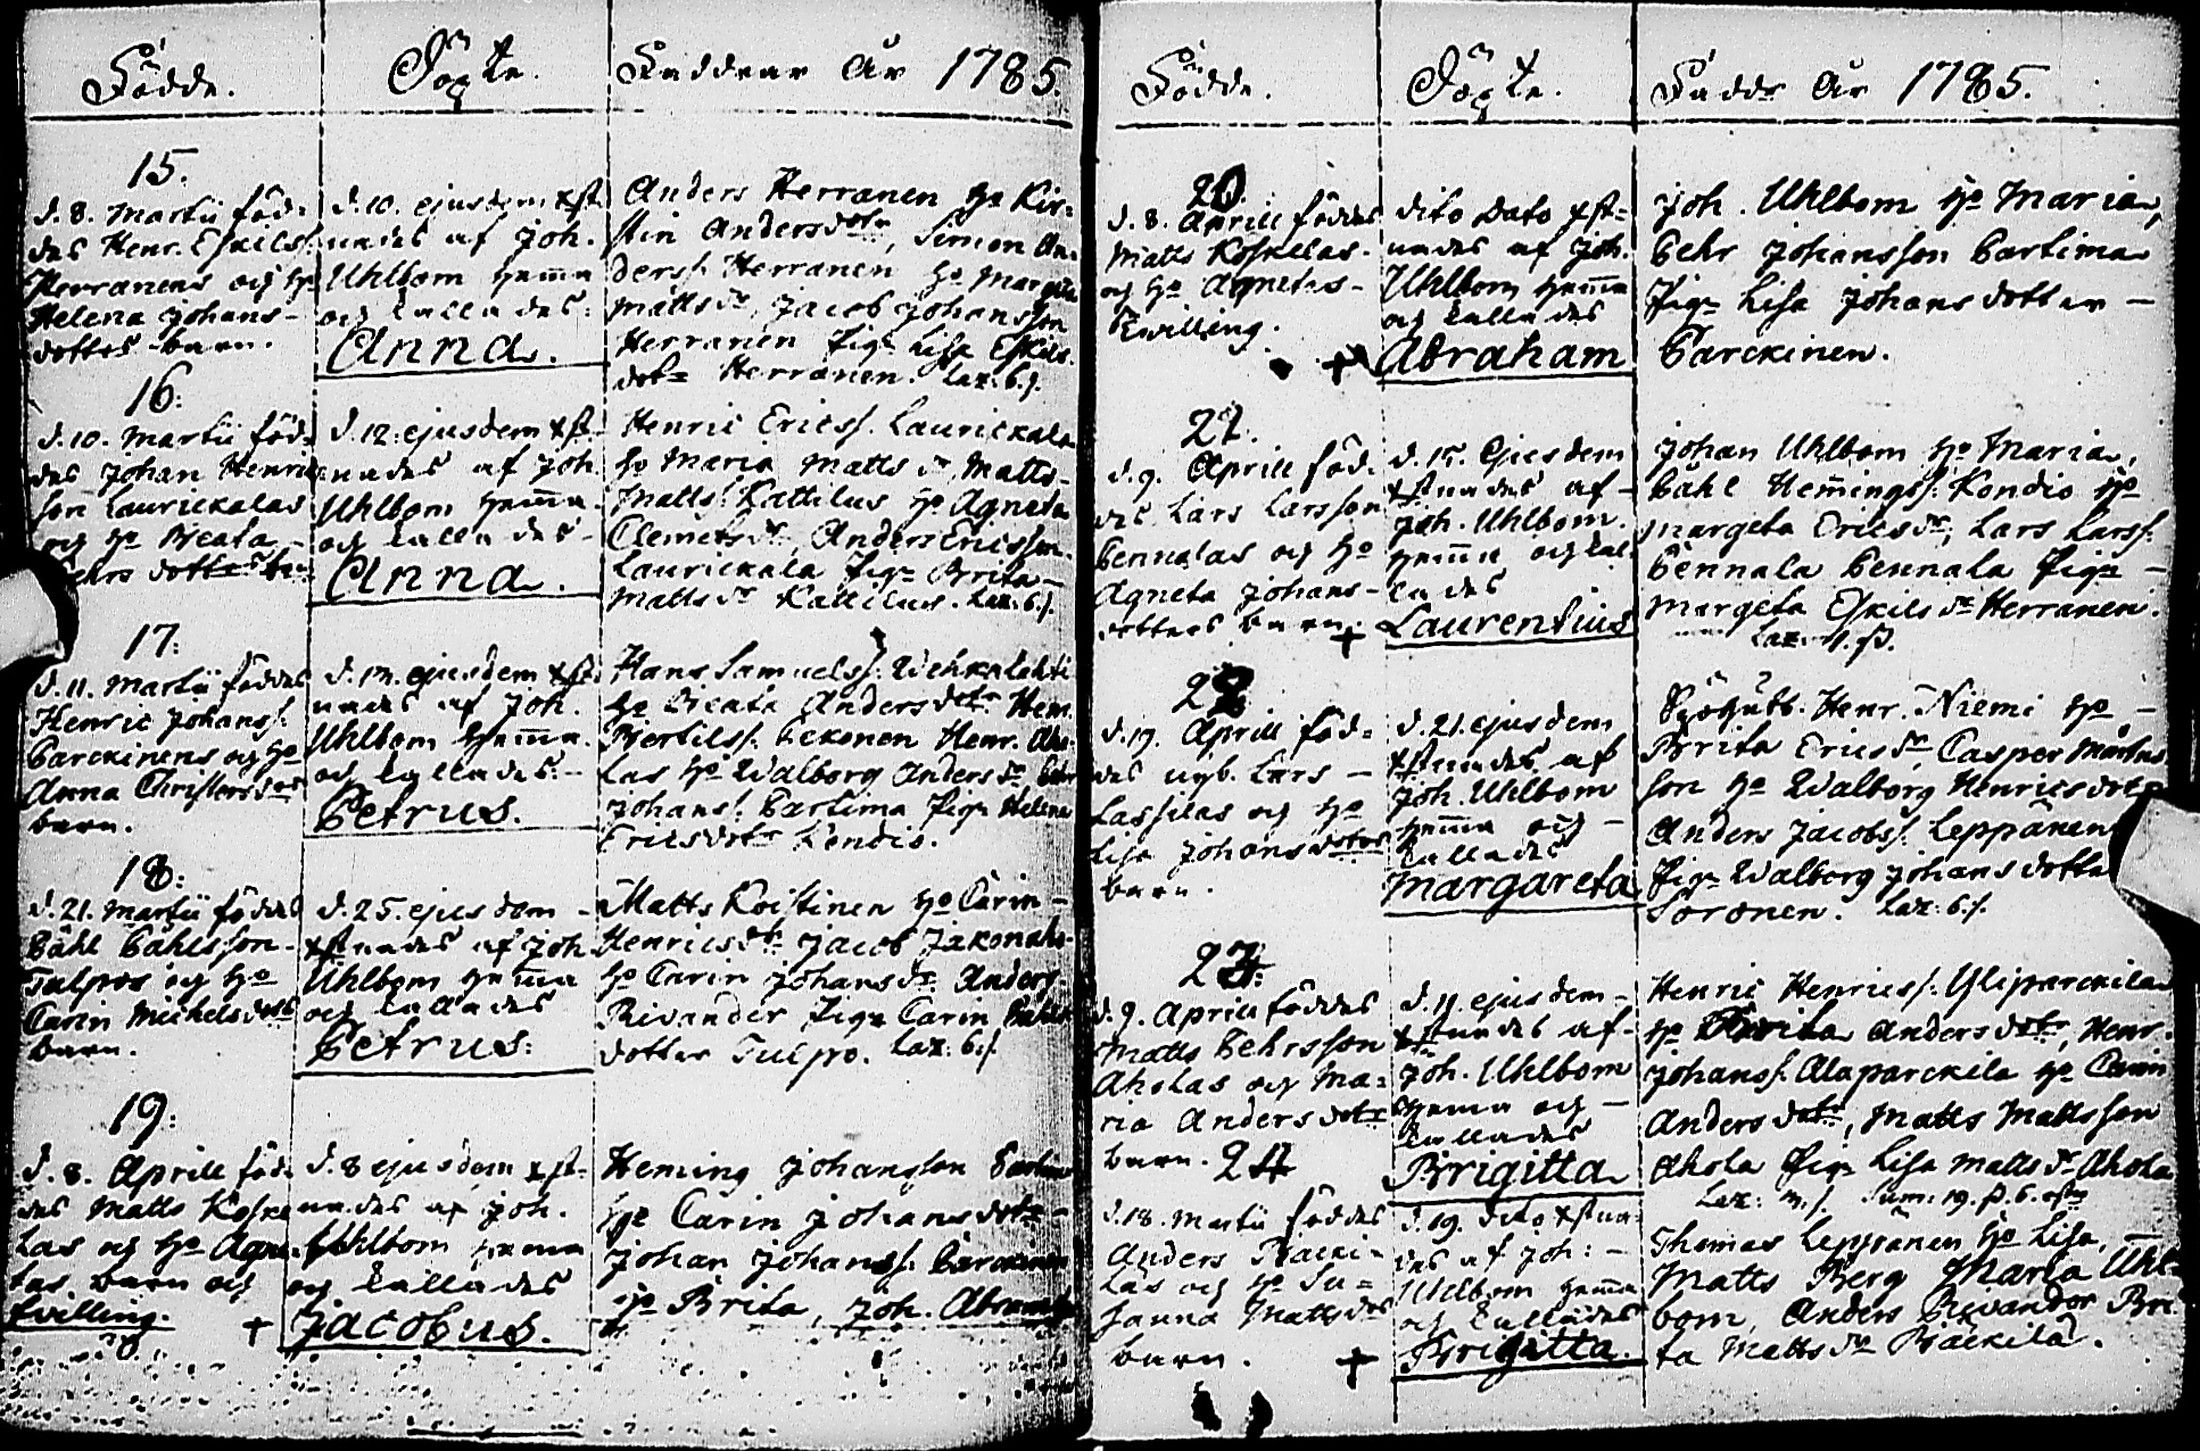 Födde.
Döpte.
Faddrar År 1785.
15.
d. 8. Martii föd=
des Henr. Eskilss.
Herranens och h:o
Helena Johans-
dotters barn.
d. 10. ejusdem xst
nades af Joh.
Uhlbom hemma
och kallades:
Anna.
Anders Herranen h:o Kir=
stin Andersdotr, Simon An=
derss. Herranen h:o Margeta
Mattsdr, Jacob Johansson
Herranen Pig. Lisa Eskils
dotr Herranen. Lax: 6 s.
16:
d. 10. Martii föd=
des Johan Henric
son Laurickalas
och h:o Beata
Pehrs dotters
d. 12. ejusdem xst
nades af Joh.
Uhlbom hemma
och kallades-
Anna.
Henric Ericss. Laurickala
h:o Maria Matts dr Matts
Matts. Kattilus h:o Agneta
Clemets dr, Anders Ericsson
Laurickala Pig. Brita
Matts dr Kattilus. Lax: 6 s.
17:
d. 11. Martii föddes
Henric Johanss.
Parckinens och h:o
Anna Christersdrs
barn.
ejusdem xst
nades af Joh.
Uhlbom hemma
och kallades:-
Petrus.
Hans Samuelss. Wehkalahti
h:o Beata Andersdotr Hem.
Bertilss. Pekonen Henr. Aho-
las h:o Walborg Anders dr
Johans. Partima Pig. Helena
Ericsdotr Kondio.
18:
d. 21. Martii föddes
Påhl Påhlsson
Tulpos och h:o
Carin Michelsdrs
barn.
d. 25. ejusdem
xstnades af Joh
Uhlbom hemma
och kallades
Petrus:
Matts Koistinen h:o Carin
Henricsdr Jacob Jakonaho
h:o Carin Johans dr Anders
Rivander Pig. Carin Påhls
dotter Tulpo. Lax: 6 s.
19:
d. 8. Aprill föd=
des Matts Koske
las och h:o Agne
tas barn och
tvilling.
d. 8 ejusdem xst=
nades af Joh.
Uhlbom hemma
och kallades
+ Jacobus.
Heming Johansson
h:o Carin Johansdotr
Johan Johanss. Parckinen
h:o Brita, Joh.
Födde.
Döpte.
Faddr År 1785.
20.
d. 8. Aprill föddes
Matts Koskelas
och h:o Agnetas
tvilling.
dito dato xst=
nades af Joh.
Uhlbom hemma
och kallades
+ Abraham
Joh. Uhlbom h:o Maria,
Pehr Johansson Partima
Pig. Lisa Johans dotter
Parckinen.
21.
d. 9. Aprill föd=
des Lars Larsson
Pennalas och h:o
Agneta Johans-
dotters barn.
d. 15. Ejusdem
xstnades af
Joh. Uhlbom.
hemma och kal=
lades
+ Laurentius
Johan Uhlbom h:o Maria,
Påhl Hemingss. Kondio h:o
Margeta Erics dr, Lars Larss.
Pennala Pennala Pig.
Margeta Eskils dr Herranen.
22
d. 19. Aprill föd=
des nyb. Lars
Lassilas och h:o
Lisa Johansdotrs
barn.
d. 21. ejusdem
xstnades af
Joh. Uhlbom
hemma och
kallades
Margareta
Henr. Niemi h:o
Brita Erics dr, Casper Mårtens
son h:o Walborg Henricsdotr
Anders Jacobss. Leppänen
Pig. Walborg Johans dotter
Soronen. Lax: 6 s.
23.
d. 9. Aprill föddes
Matts Pehrsson
Aholas och Ma=
ria Andersdotr
barn.
d. 11. ejusdem
xstnades af
Joh. Uhlbom
hemma och
kallades
Brigitta
Henric Henricss. Yliparckila
h:o Brita Andersdotr, Henr.
Johanss. Alaparckila h:o Carin
Andersdotr, Matts Mattsson
Ahola Pig. Lisa Matts dr Ahola
24
d. 18. Martii föddes
Anders Räcki-
las och h:o Su=
sanna Matts drs
barn.
d. 19. dito xstna
des af Joh:
Uhlbom hemma
och kallades
+ Brigitta.
Thomas Leppänen h:o Lisa,
Matts Berg Maria Uhl=
bom, Anders Rivander Bri=
ta Matts dr Räckilä.